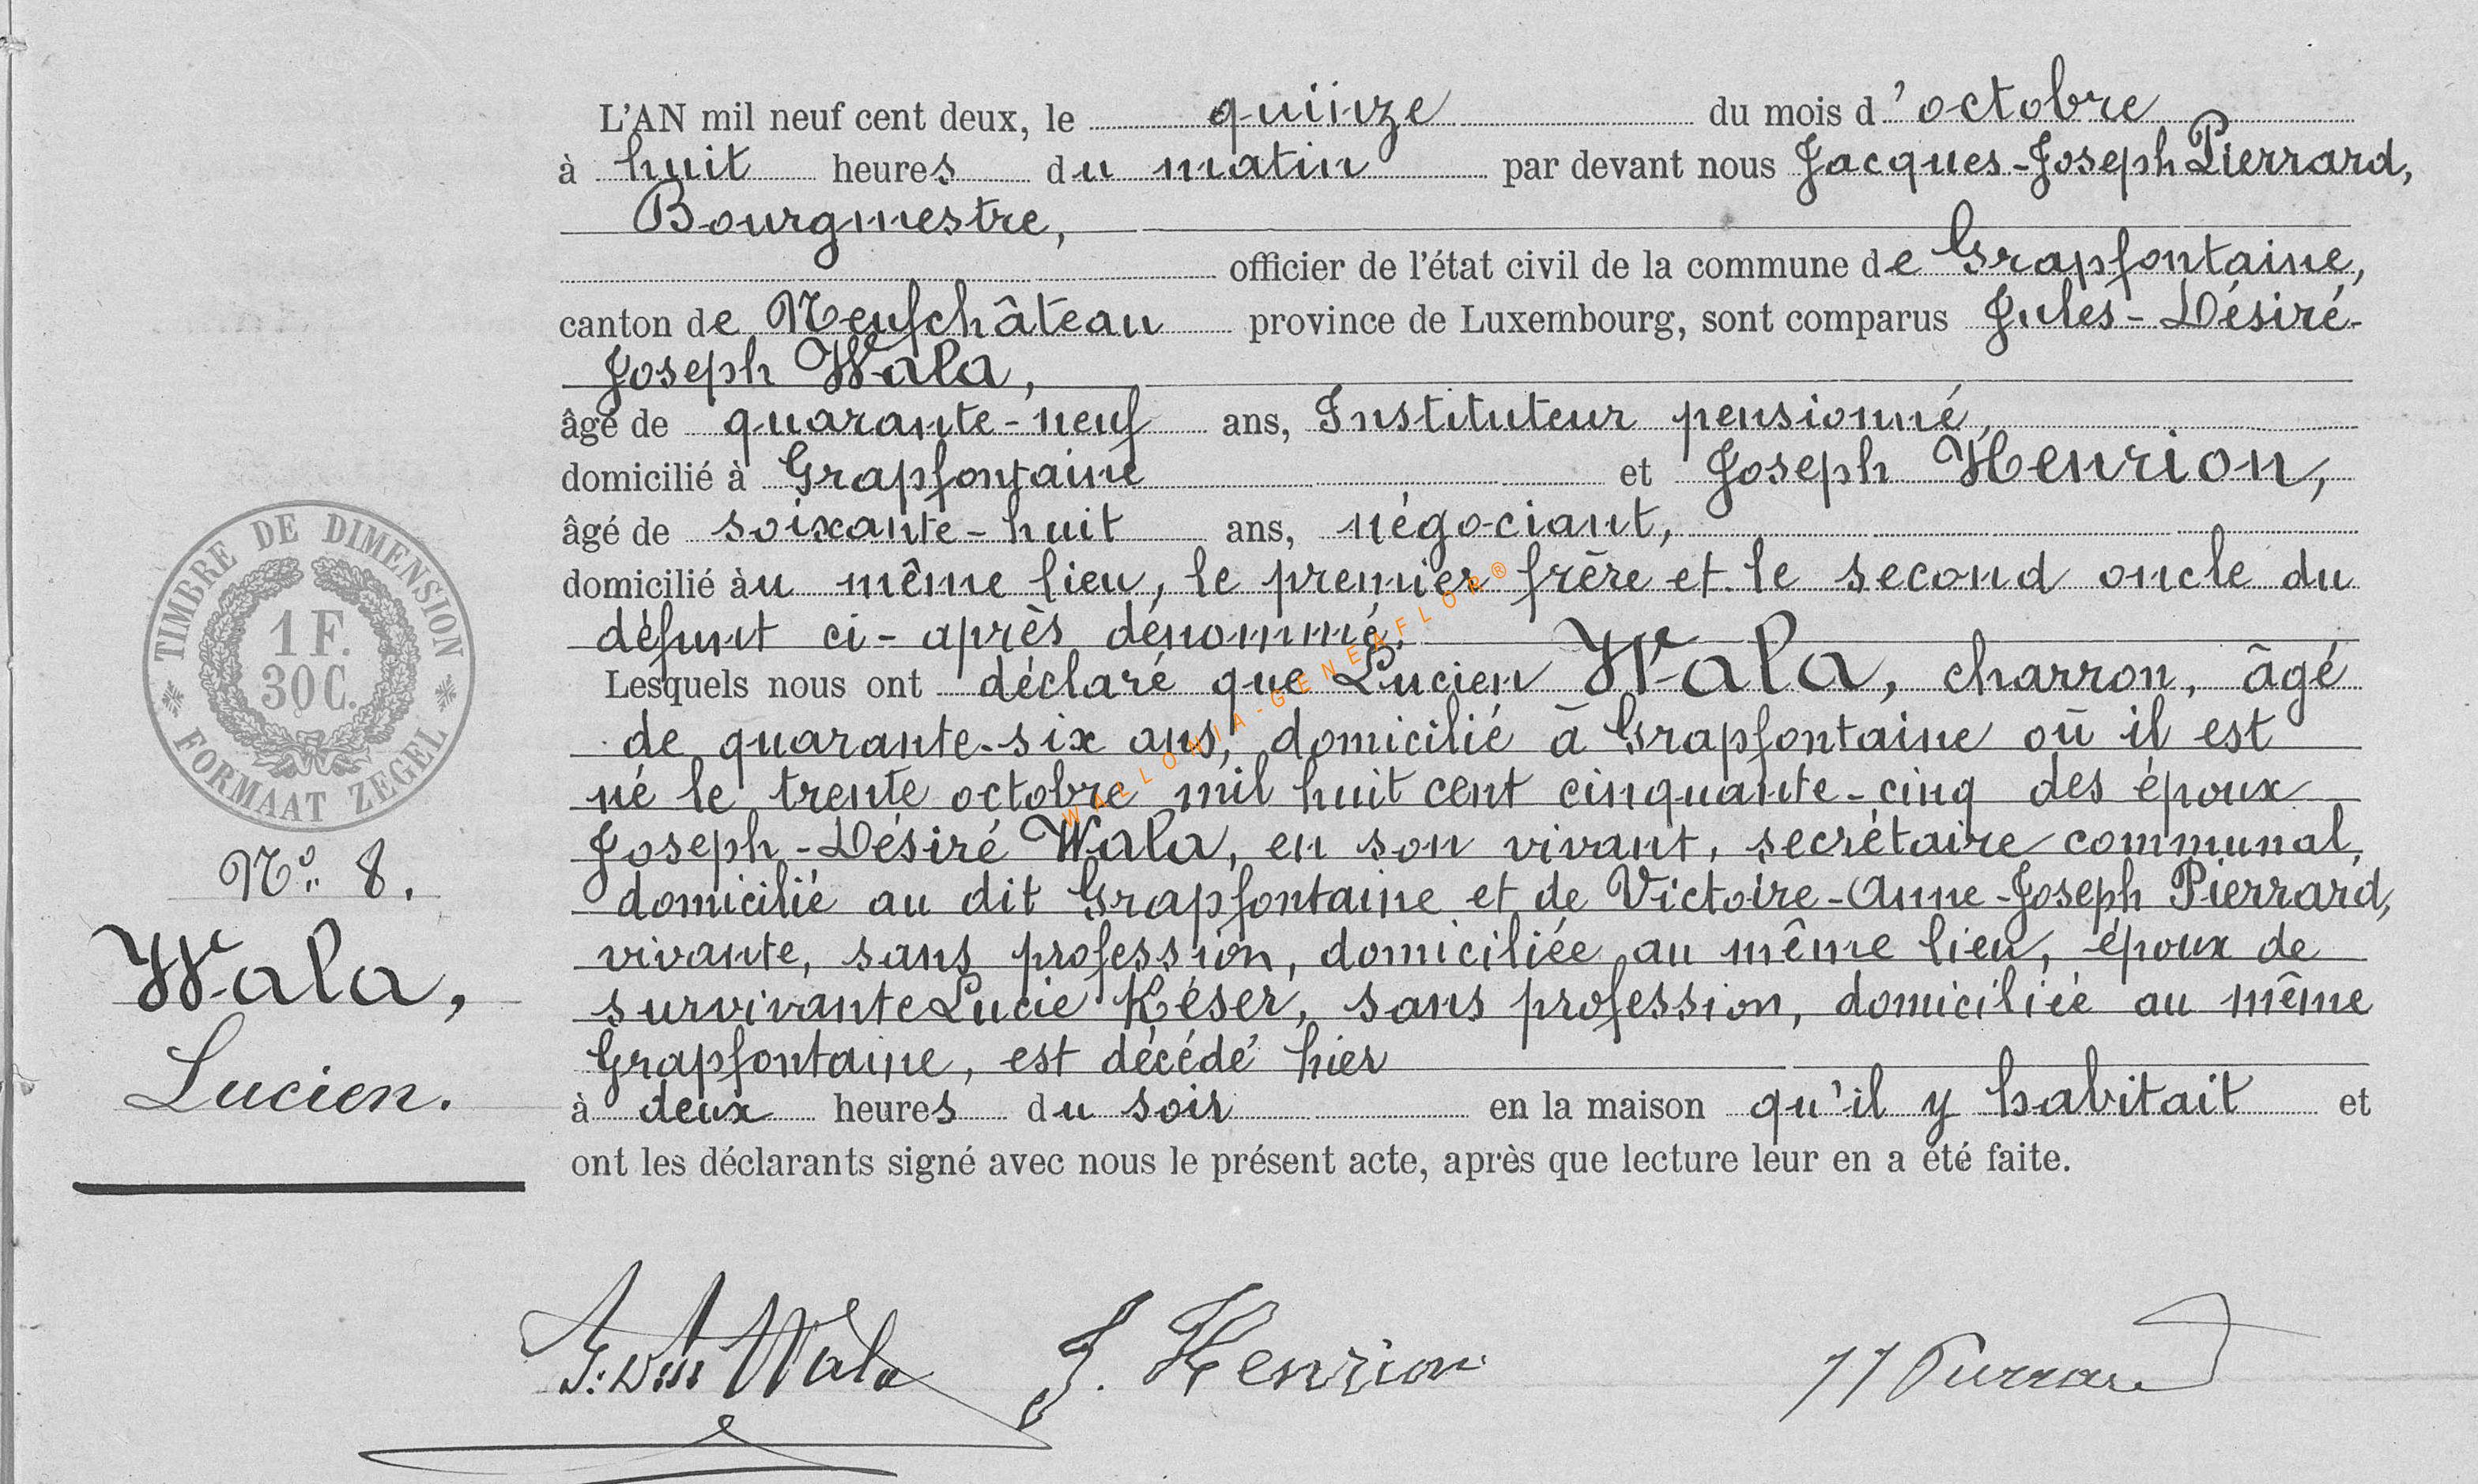 L'AN mil neuf cent deux, le quinze du mois d'octobre
à huit heures du matin par devant nous Jacques-Joseph Pierrard,
Bourgmestre,
officier de l'état civil de la commune de Grapfontaine,
canton de Neufchâteau province de Luxembourg, sont comparus Jules-Désiré-
Joseph Wala,
âgé de quarante-neuf ans, Instituteur pensionné,
domicilié à Grapfontaine et Joseph Henrion,
âgé de soixante-huit ans, négociant,
domicilié àu même lieu, le premier frère et le second oncle du
défunt ci-après dénommé.
Lesquels nous ont déclaré que Lucien Wala, charron, âgé
de quarante-six ans, domicilié à Grapfontaine où il est
né le trente octobre mil huit cent cinquante-cinq des époux
Joseph-Désiré Wala, en son vivant, secrétaire communal,
domicilié au dit Grapfontaine et de Victoire-Anne-Joseph Pierrard,
vivante, sans profession, domiciliée au même lieu, époux de
survivante Lucie Késer, sans profession, domiciliée au même
Grapfontaine, est décédé hier
à deux heures du soir en la maison qu'il y habitait et
ont les déclarants signé avec nous le présent acte, après que lecture leur en a été faite.
TIMBRE DE DIMENSION
1 F.
30 C.
FORMAAT ZEGEL
No. 8.
Wala,
Lucien.
WALLONIA-GENEAFLOR®
Wala J. Henrion JJ Pierrard